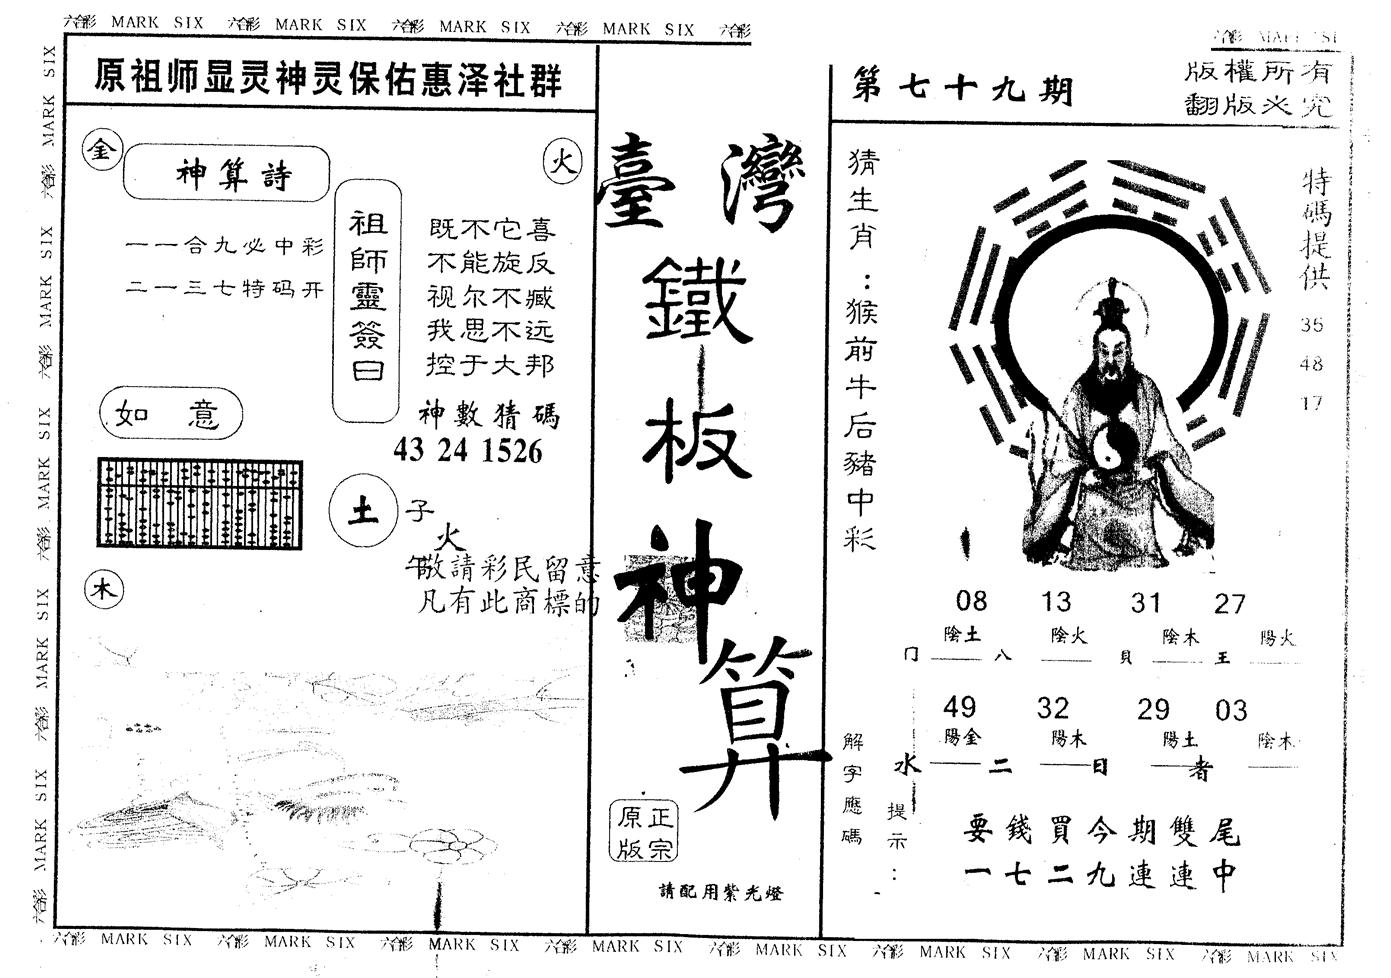 六合彩 MARK SIX 六合彩 MARK SIX 六合彩 MARK SIX 六合彩 MARK SIX 六合彩
六合彩 MARK SI
原祖师显灵神灵保佑惠泽社群
金
火
神算詩
一一合九必中彩
二一三七特码开
祖師靈簽曰
既不它喜
不能旋反
视尔不臧
我思不远
控于大邦
神數猜碼
43 24 1526
如意
土
子
火
午
敬請彩民留意
凡有此商標的
木
臺灣
鐵
板
神
算
正宗
原版
請配用紫光燈
第七十九期
版權所有
翻版必究
猜生肖：猴前牛后豬中彩
特碼提供
35
48
17
08 13 31 27
陰土 陰火 陰木 陽火
门 八 貝 王
49 32 29 03
陽金 陽木 陽土 陰木
水 二 日 者
解字應碼
提示：
要錢買今期雙尾
一七二九連連中
六合彩 MARK SIX 六合彩 MARK SIX 六合彩 MARK SIX 六合彩 MARK SIX 六合彩 MARK SIX 六合彩 MARK SIX 六合彩 MARK SIX 六合彩 MARK SIX
六合彩 MARK SIX 六合彩 MARK SIX 六合彩 MARK SIX 六合彩 MARK SIX 六合彩 MARK SIX